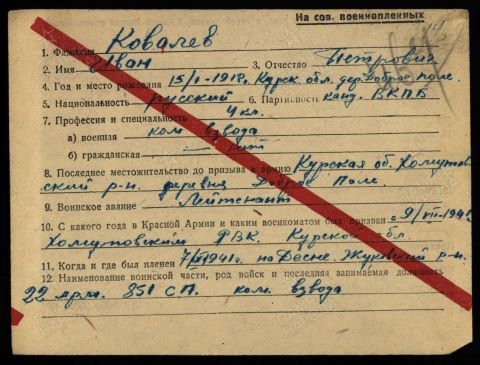 На сов. военнопленных
1. Фамилия Ковалев
2. Имя Иван 3. Отчество Петрович
4. Год и место рождения 15/I-1918г. Курск. обл. дер. Доброе поле.
5. Национальность русский 6. Партийность канд. ВКПБ
7. Профессия и специальность 4 кл.
а) военная ком. взвода
б) гражданская
8. Последнее местожительство до призыва в армию Курская об. Хомутов-
ский р-н. деревня Доброе Поле
9. Воинское звание Лейтенант
10. С какого года в Красной Армии и каким военкоматом был призван с 9/VII-1941
Хомутовским РВК. Курской обл.
11. Когда и где был пленен 1941г. на Десне. Жуковский р-н.
12. Наименование воинской части, род войск и последняя занимаемая должность
22 арм. 851 С.П. ком. взвода